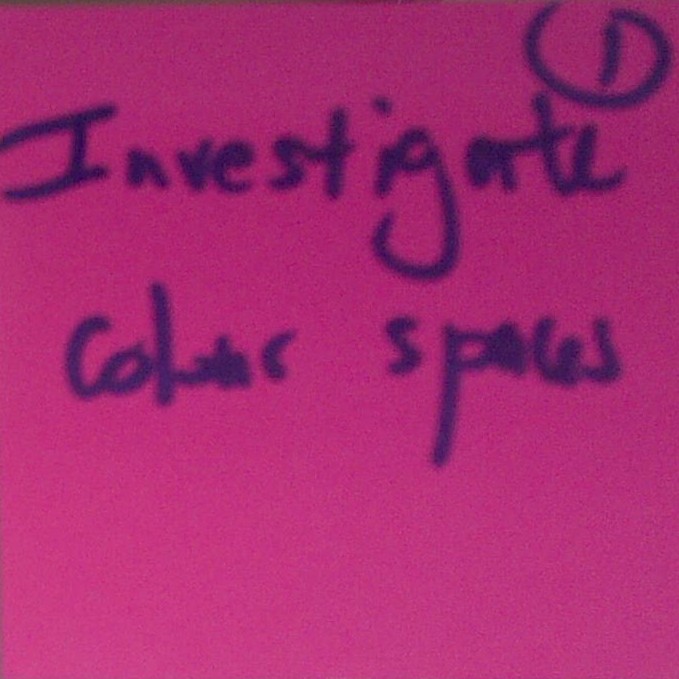 1
Investigate
Colour spaces